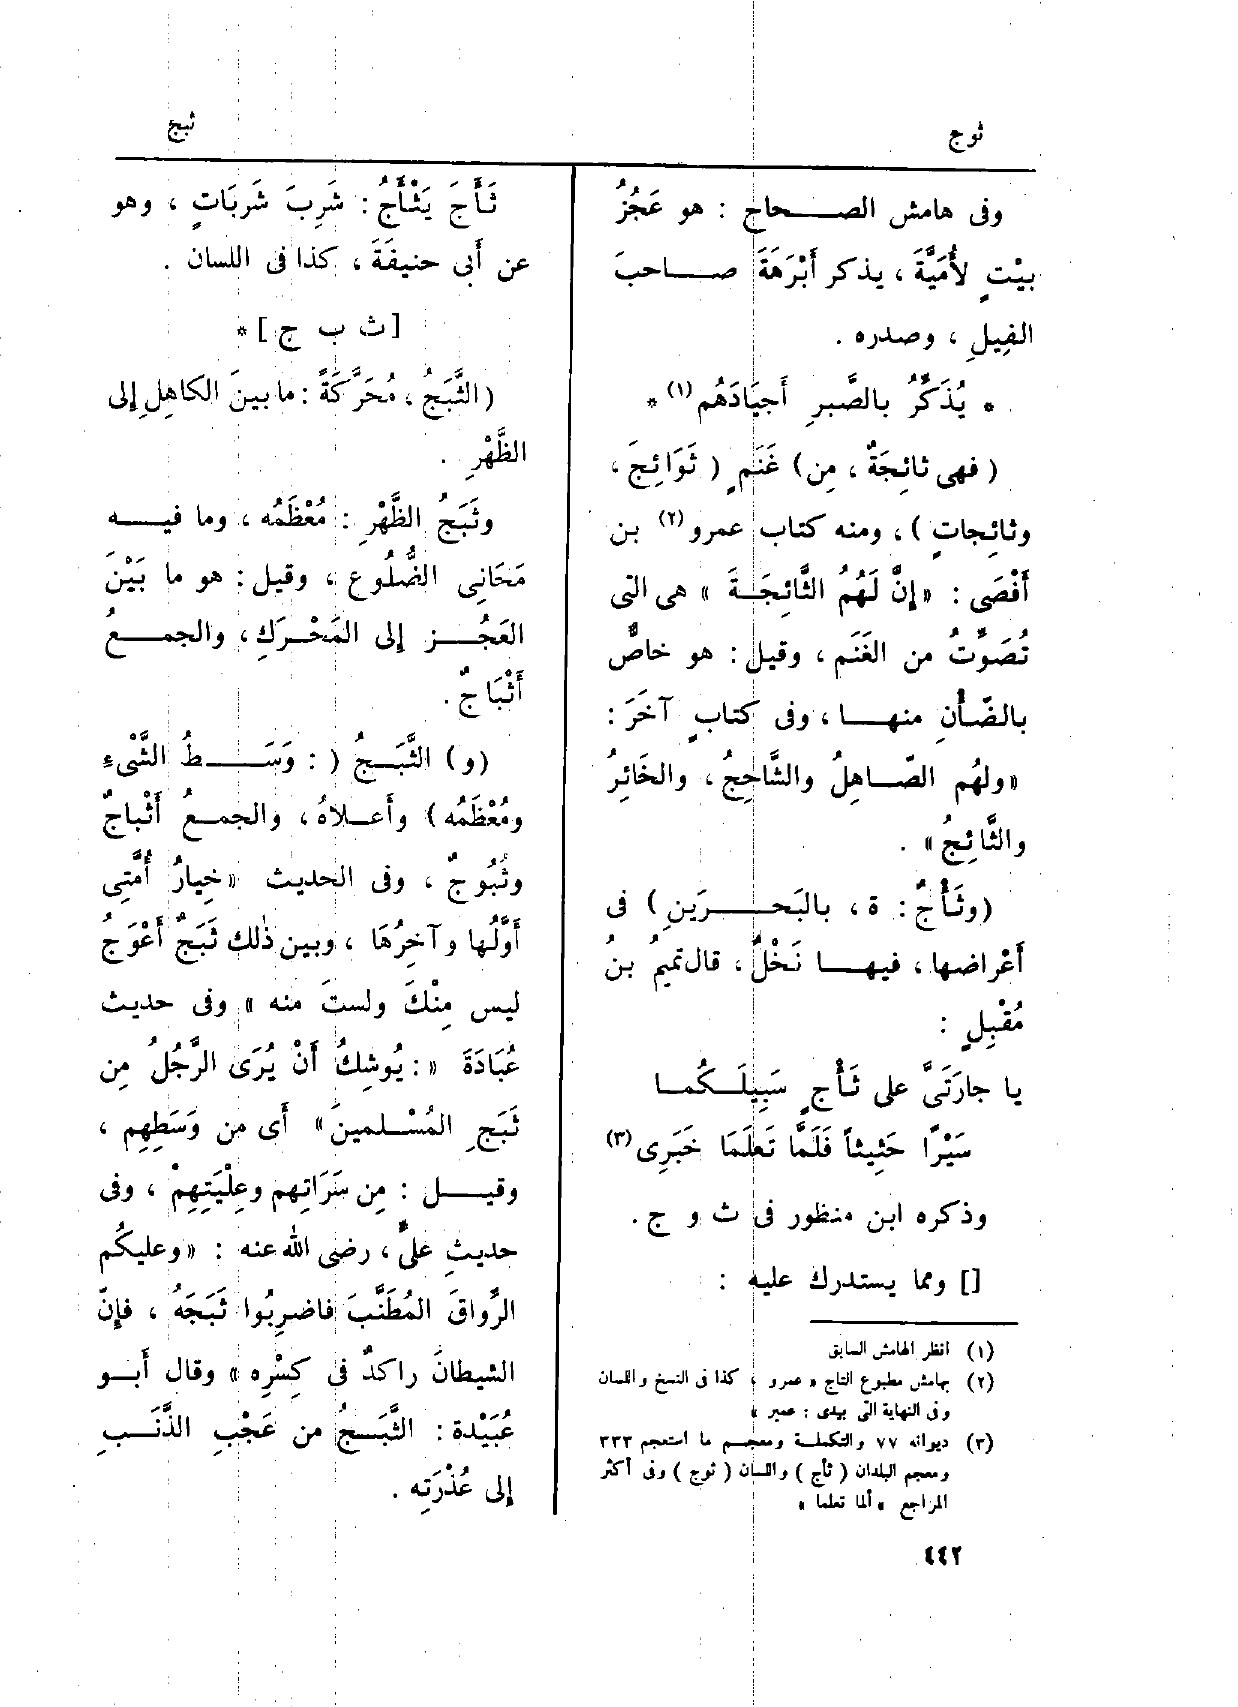 ثوج
ثبج
وفى هامش الصــحاج : هو عَجُزُ
بيْتٍ لأُمَيَّةَ ، يذكر أَبْرَهَةَ صــاحبَ
الفِيلِ ، وصدره .
* يُذَكِّرُ بالصَّبرِ أَجيَادَهُم (١) *
( فهى ثائِجَةٌ ، مِن) غَنَمٍ ( ثَوَائِجَ ،
وثائِجاتٍ ) ، ومنه كتاب عمرو (٢) بن
أَفْصَى : «إنَّ لَهُمُ الثَّائِجَـةَ » هى التى
تُصَوِّتُ من الغَنَم ، وقيل : هو خاصٌّ
بالضَّأْنِ منهــا ، وفى كتابٍ آخَرَ :
«ولهُم الصّـاهِلُ والشَّاحِجُ ، والخَائِرُ
والثَّائِجُ» .
(وثَأْجٌ : ة ، بالبَحــرَينِ) فى
أَعْراضها ، فيهــا نَخْلٌ ، قال تميمُ بنُ
مُقْبِلٍ :
يا جارَتَىَّ على ثَأْجٍ سَبِيلَـكُمـا
سَيْرًا حَثِيثاً فَلَمَّا تَعلَمَا خَبَرِى (٣)
وذكره ابن منظور فى ث و ج .
[] ومما يستدرك عليه :
(١) انظر الهامش السابق
(٢) بهامش مطبوع التاج « عمرو ، كذا فى النسخ واللسان
وفى النهاية التى بيدى : عمير »
(٣) ديوانه ٧٧ والتكملـة ومعجـم ما استعجم ٣٣٣
ومعجم البلدان ( ثأج ) واللسان ( ثوج ) وفى أكثر
المراجع « ألما تعلما »
ثَأَجَ يَثْأَجُ : شَرِبَ شَرَبَاتٍ ، وهو
عن أَبى حنيفَةَ ، كذا فى اللسان .
[ ث ب ج ] *
( الثَّبَجُ ، مُحَرَّكَةً : ما بينَ الكاهِلِ إلى
الظَّهْرِ .
وثَبَجُ الظَّهْرِ : مُعْظَمُه ، وما فيــه
مَحَانِى الضُّلُوعِ ، وقيل : هو ما بَيْنَ
العَجُــز إلى المَحْرَكِ ، والجمــعُ
أَثْبَاجٌ .
(و) الثَّبَـجُ ( : وَسَــطُ الشَّىْءِ
ومُعْظَمُه) وأَعـلاهُ ، والجمـعُ أَثْباجٌ
وثُبُوجٌ ، وفى الحديث «خِيارُ أُمَّتِى
أَوَّلُها وآخِرُهَا ، وبين ذٰلك ثَبَجٌ أَعْوَجُ
ليس مِنْكَ ولستَ منه » وفى حديث
عُبَادَةَ « : يُوشِكُ أَنْ يُرَى الرَّجُلُ مِن
ثَبَجِ المُسْـلمينَ» أَى من وَسَطِهِم ،
وقيــل : مِن سَرَاتِهم وعِلْيَتِهِمْ ، وفى
حديثِ علىٍّ ، رضى الله عنه : «وعليكُم
الرِّواقَ المُطَنَّبَ فاضرِبُوا ثَبَجَهُ ، فإنّ
الشيطانَ راكدٌ فى كِسْرِه » وقال أَبــو
عُبَيْدة : الثَّبَـجُ من عَجْبِ الذَّنَــبِ
إلى عُذْرَتِه .
٤٤٢